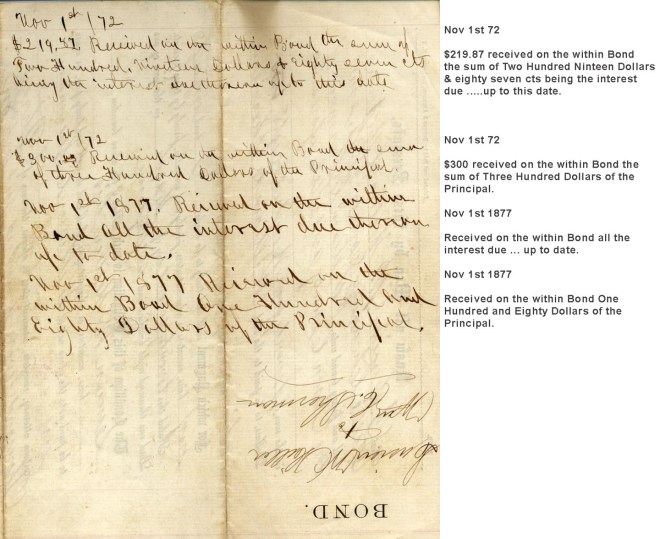 Nov 1st /72
$219.87 Received on the within Bond the sum of
Two Hundred, Nineteen Dollars & Eighty seven cts
being the interest due thereon up to this date
Nov 1st /72
$300. Received on the within Bond the sum
of three Hundred Dollars of the Principal.
Nov 1st 1877. Received on the within
Bond all the interest due thereon
up to date.
Nov 1st 1877 Received on the
within Bond One Hundred and
Eighty Dollars of the Principal.
Sherman
To
BOND.
Nov 1st 72
$219.87 received on the within Bond
the sum of Two Hundred Ninteen Dollars
& eighty seven cts being the interest
due .....up to this date.
Nov 1st 72
$300 received on the within Bond the
sum of Three Hundred Dollars of the
Principal.
Nov 1st 1877
Received on the within Bond all the
interest due ... up to date.
Nov 1st 1877
Received on the within Bond One
Hundred and Eighty Dollars of the
Principal.